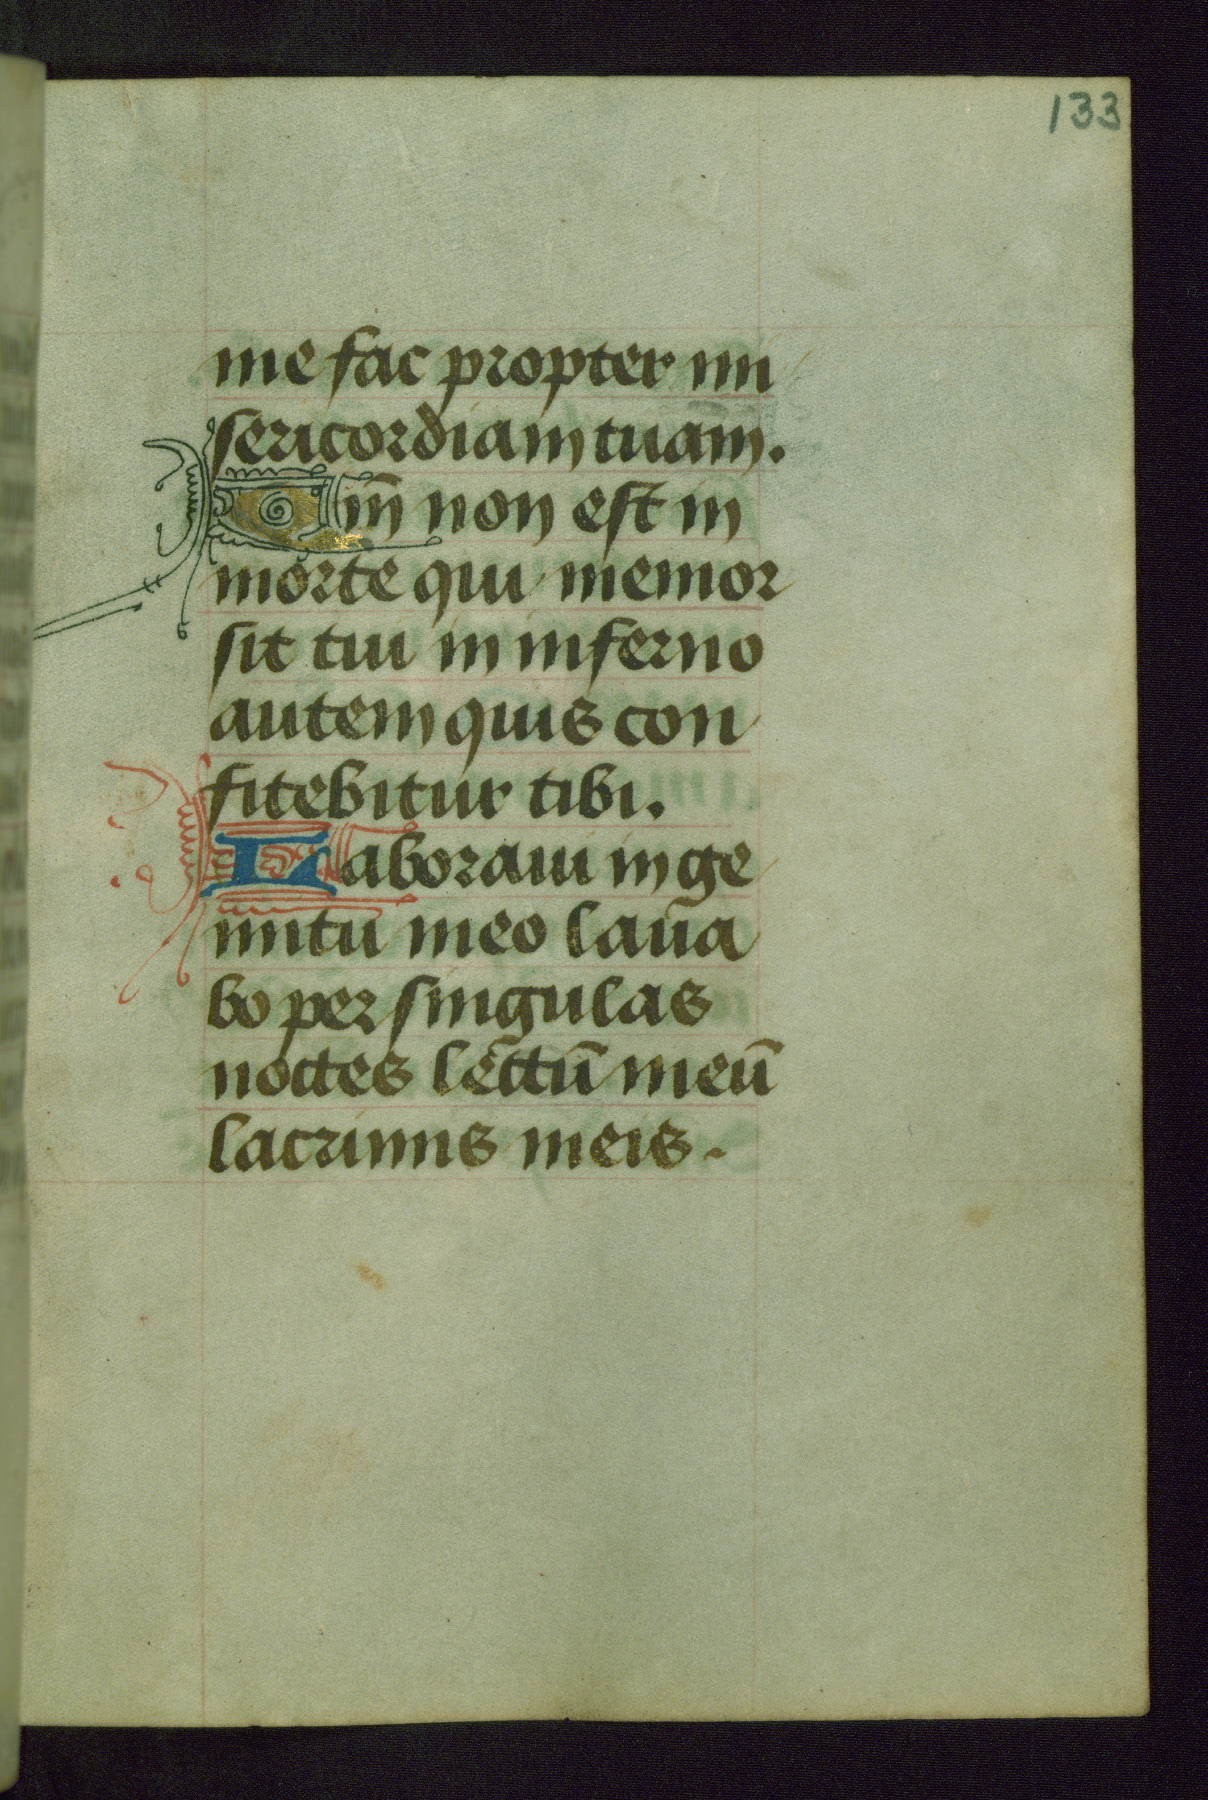 133
me fac propter mi
sericordiam tuam.
Qm̄ non est in
morte qui memor
sit tui in inferno
autem quis con
fitebitur tibi.
Laboraui in ge
mitu meo laua
bo per singulas
noctes lectū meū
lacrimis meis.